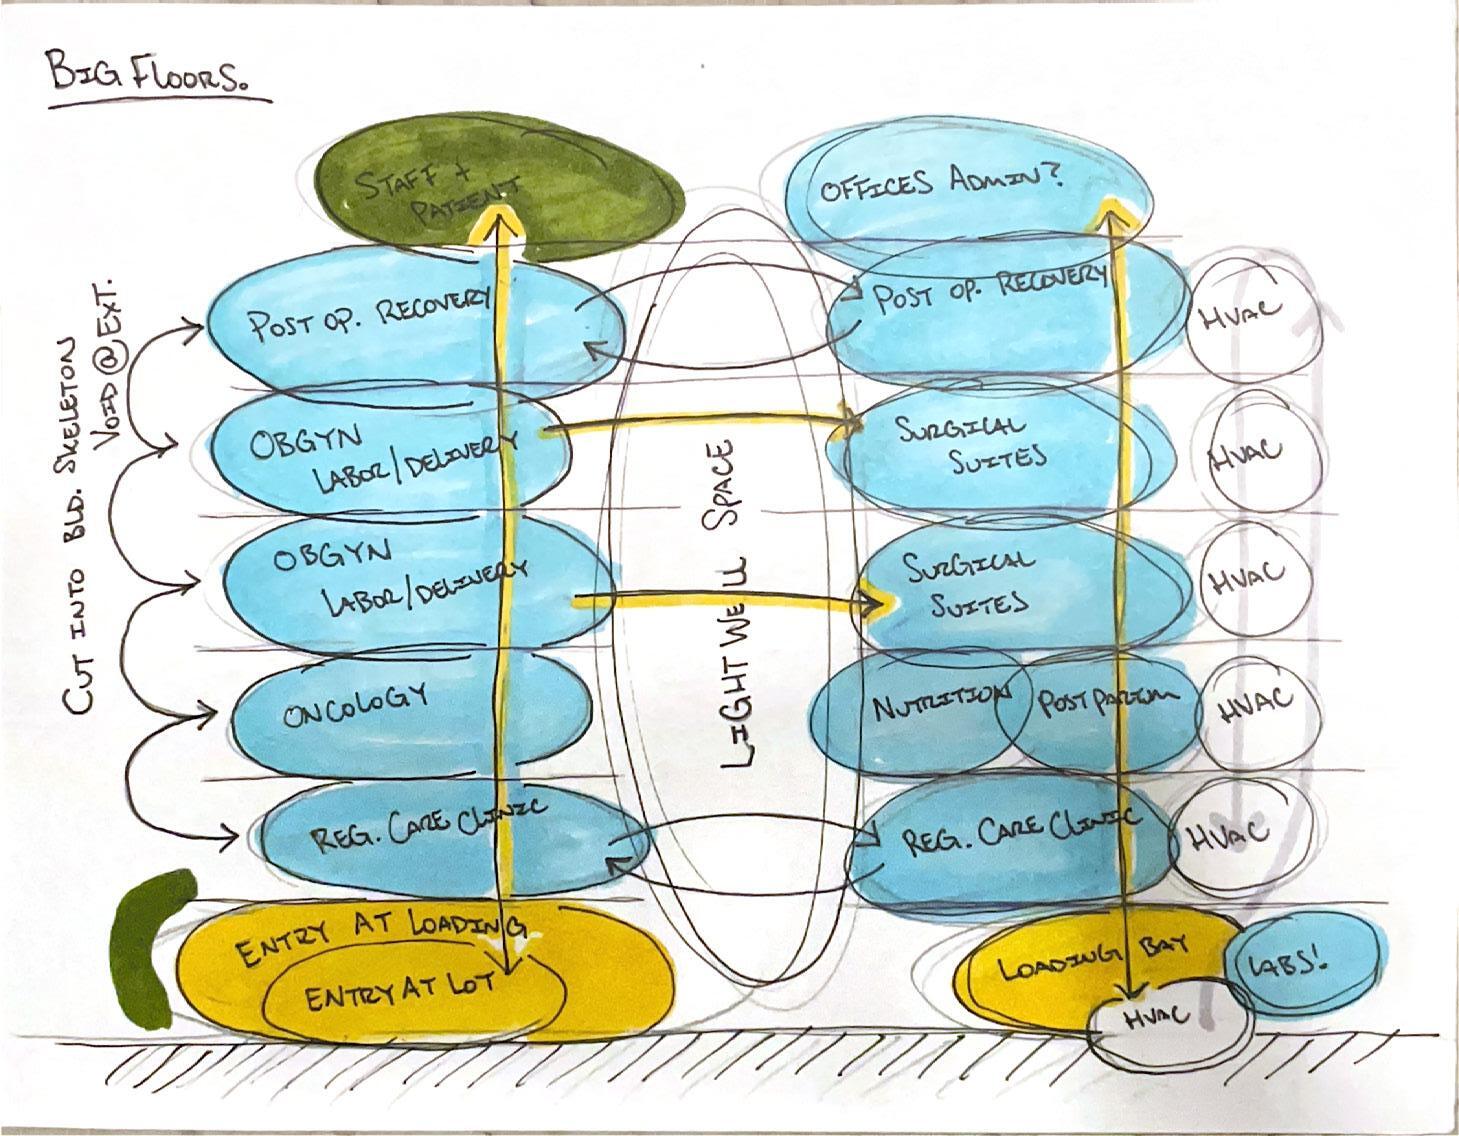 BIG FLOORS.
STAFF +
PATIENT
OFFICES ADMIN?
POST OP. RECOVERY
POST OP. RECOVERY
HVAC
CUT INTO BLD. SKELETON
VOID @ EXT.
OBGYN
LABOR/DELIVERY
SURGICAL
SUITES
HVAC
LIGHTWELL SPACE
OBGYN
LABOR/DELIVERY
SURGICAL
SUITES
HVAC
ONCOLOGY
NUTRITION
POST PARTUM
HVAC
REG. CARE CLINIC
REG. CARE CLINIC
HVAC
ENTRY AT LOADING
ENTRY AT LOT
LOADING BAY
LABS!
HVAC